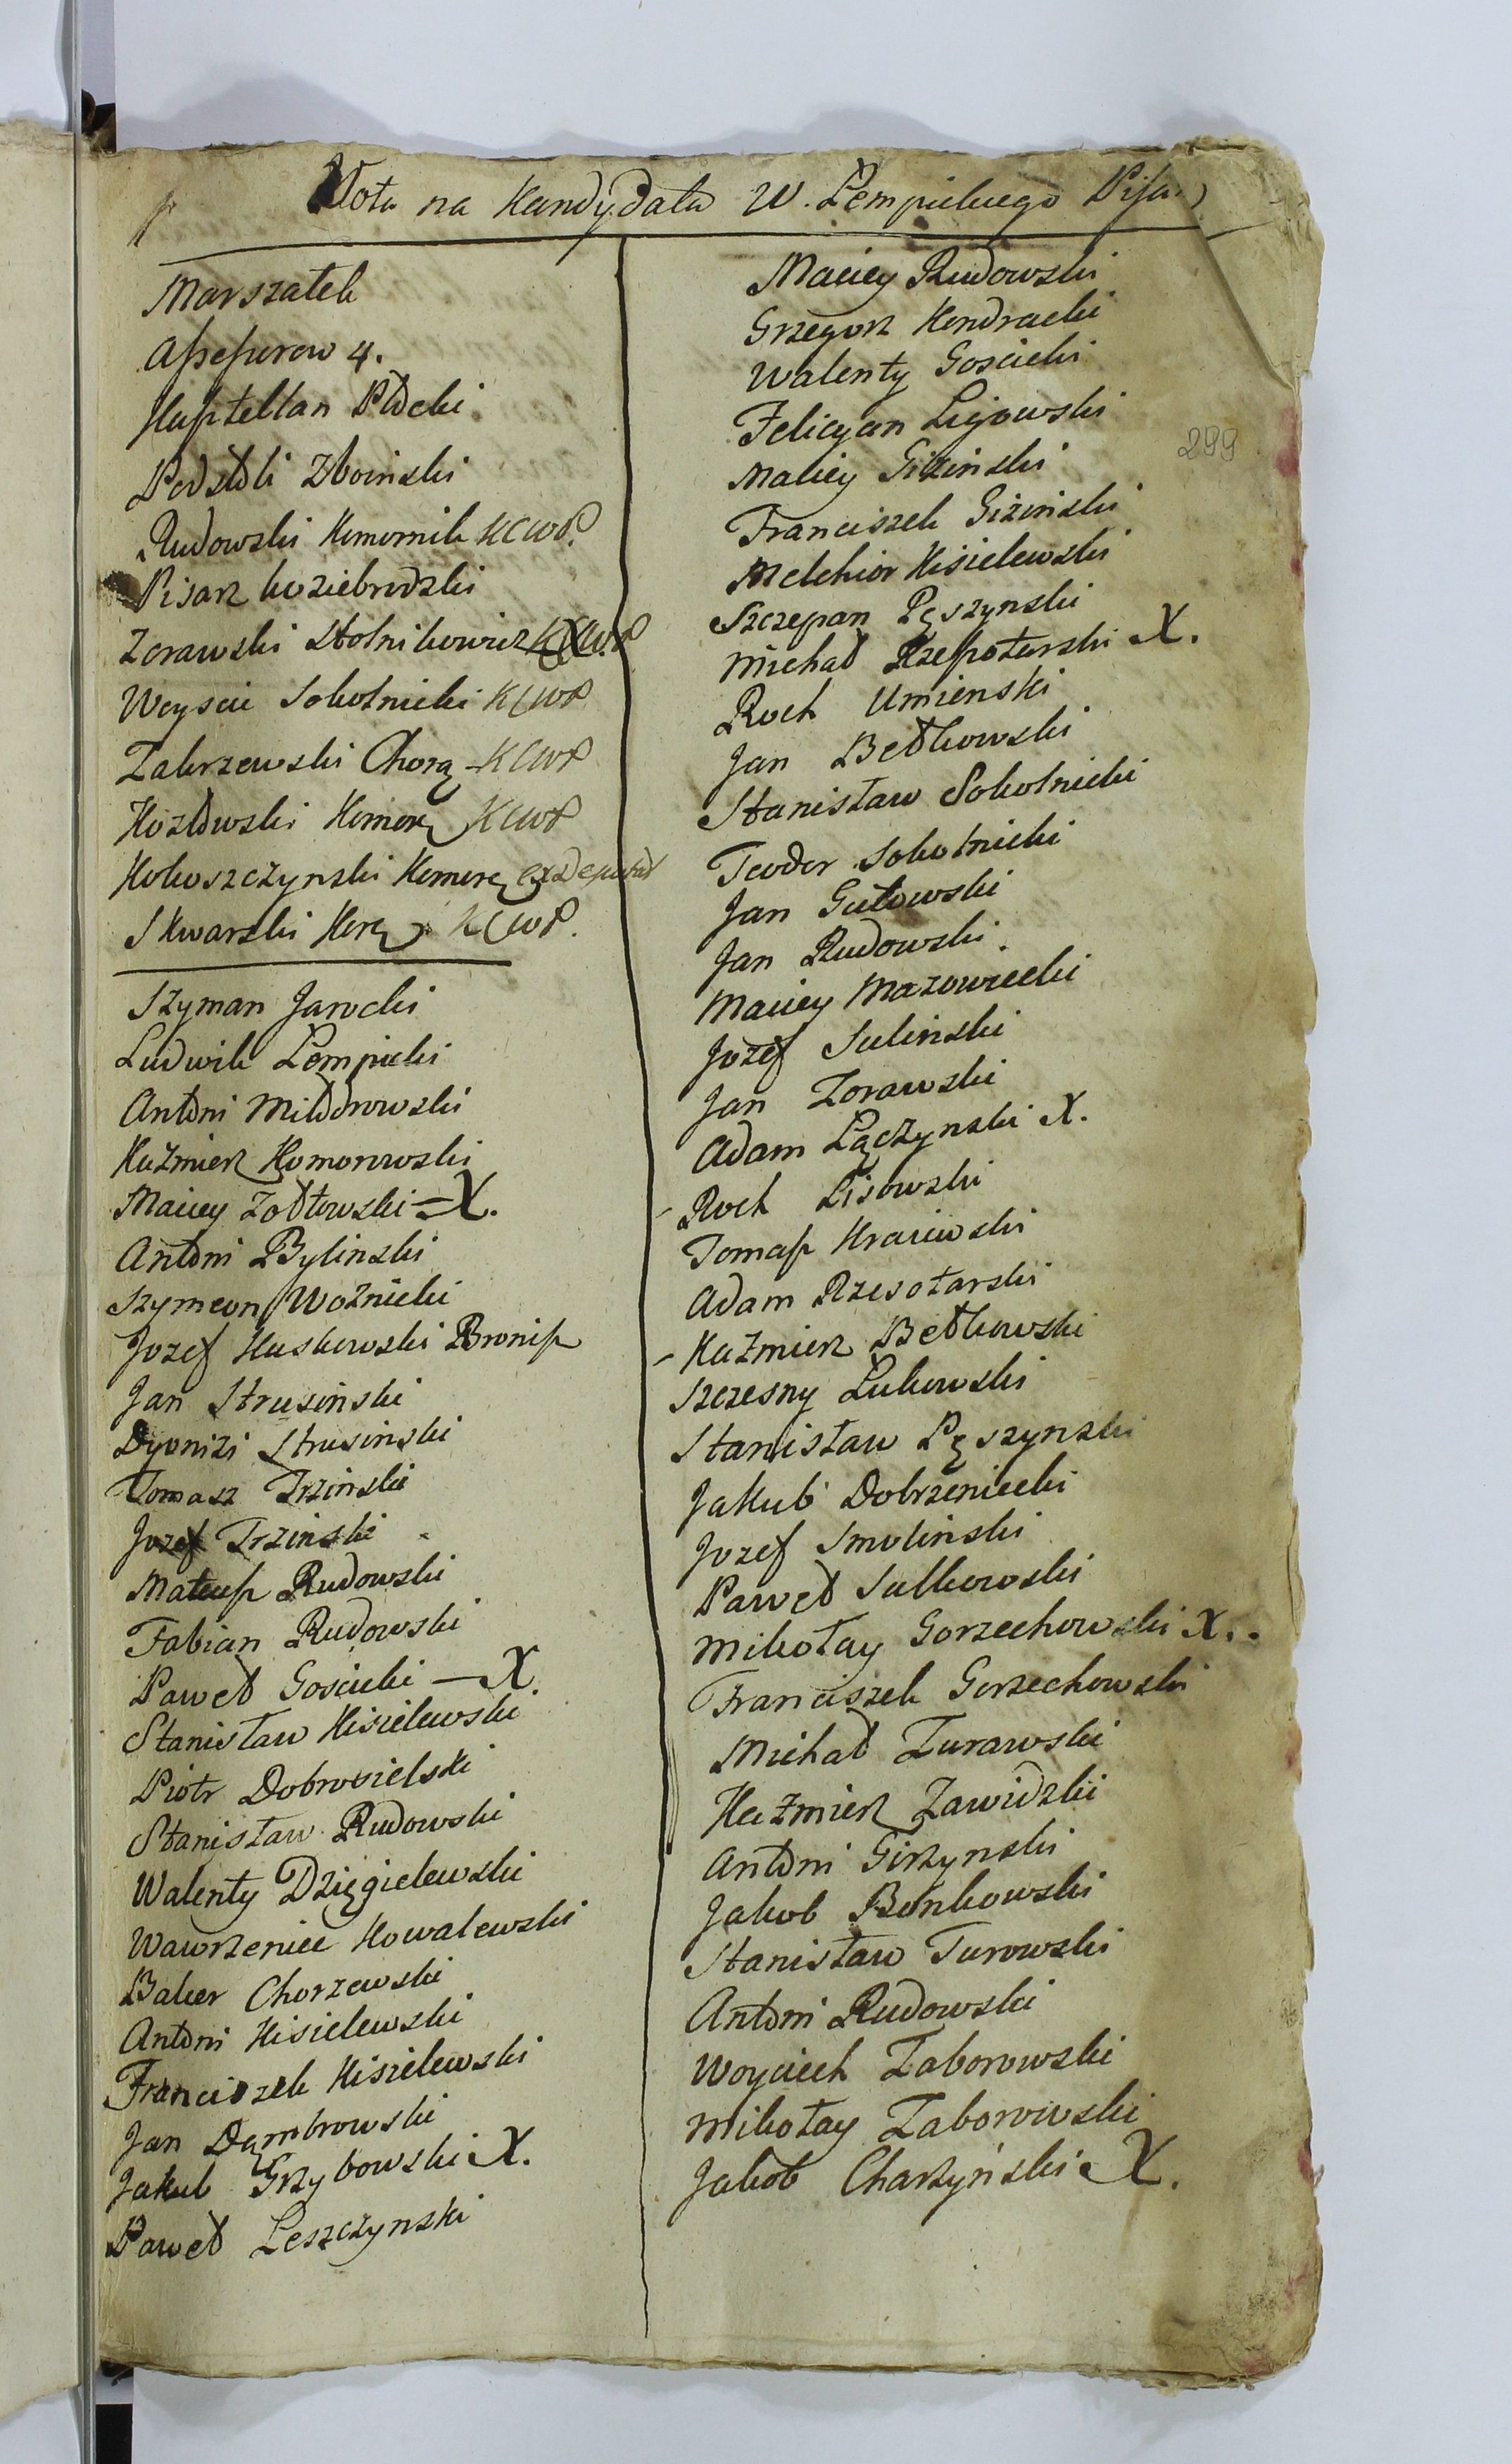 Vota na Kandydata W. Łempickiego Pisar
Marszałek
Assessorow 4.
Kasztellan Płocki
Podstoli Zboinski
Rudowski Komornik KCWP.
Pisarz Koziebrodzki
Zorawski Stolnikowicz KCWP
Woyscic Sokolnicki KCWP
Zakrzewski Chorą KCWP
Kozłowski Komorą KCWP
Kokoszczynski Komorą exDeputat
Skwarski Horą KCWP.
Szyman Jarocki
Ludwik Łempicki
Antoni Miłodrowski
Kaźmierz Komorowski
Maciey Zołtowski — X.
Antoni Bylinski
Szymeon Woźnicki
Jozef Kuskowski Bronisz
Jan Strusinski
Dyonizi Strusinski
Tomasz Trzinski
Jozef Trzinski
Mateusz Rudowski
Fabian Rudowski
Paweł Goscicki — X.
Stanisław Kisielewski
Piotr Dobrosielski
Stanisław Rudowski
Walenty Dzięgielewski
Wawrzeniec Kowalewski
Balcer Chorzewski
Antoni Kisielewski
Franciszek Kisielewski
Jan Dąmbrowski
Jakub Grzybowski X.
Paweł Leszczynski
Maciey Rudowski
Grzegorz Kondracki
Walenty Goscicki
Felicyan Ligowski
Maciey Gizinski
Franciszek Gizinski
Melchior Kisielewski
Szczepan Pęszynski
Michał Rzeszotarski X.
Roch Umienski
Jan Bełkowski
Stanisław Sokolnicki
Teodor Sokolnicki
Jan Gutowski
Jan Rudowski.
Maciey Mazowiecki
Jozef Sulinski
Jan Zorawski
Adam Łączynski X.
Roch Lisowski
Tomasz Kraiewski
Adam Rzesotarski
Kaźmierz Bełkowski
Szczesny Łukowski
Stanisław Pęszynski
Jakub Dobrzeniecki
Jozef Smolinski
Paweł Sulkowski
Mikołay Gorzechowski X..
Franciszek Gorzechowski
Michał Zurawski
Kaźmierz Zawidzki
Antoni Girzynski
Jakob Bonkowski
Stanisław Turowski
Antoni Rudowski
Woyciech Zaborowski
Mikołay Zaborowski
Jakob Charzyński X.
299